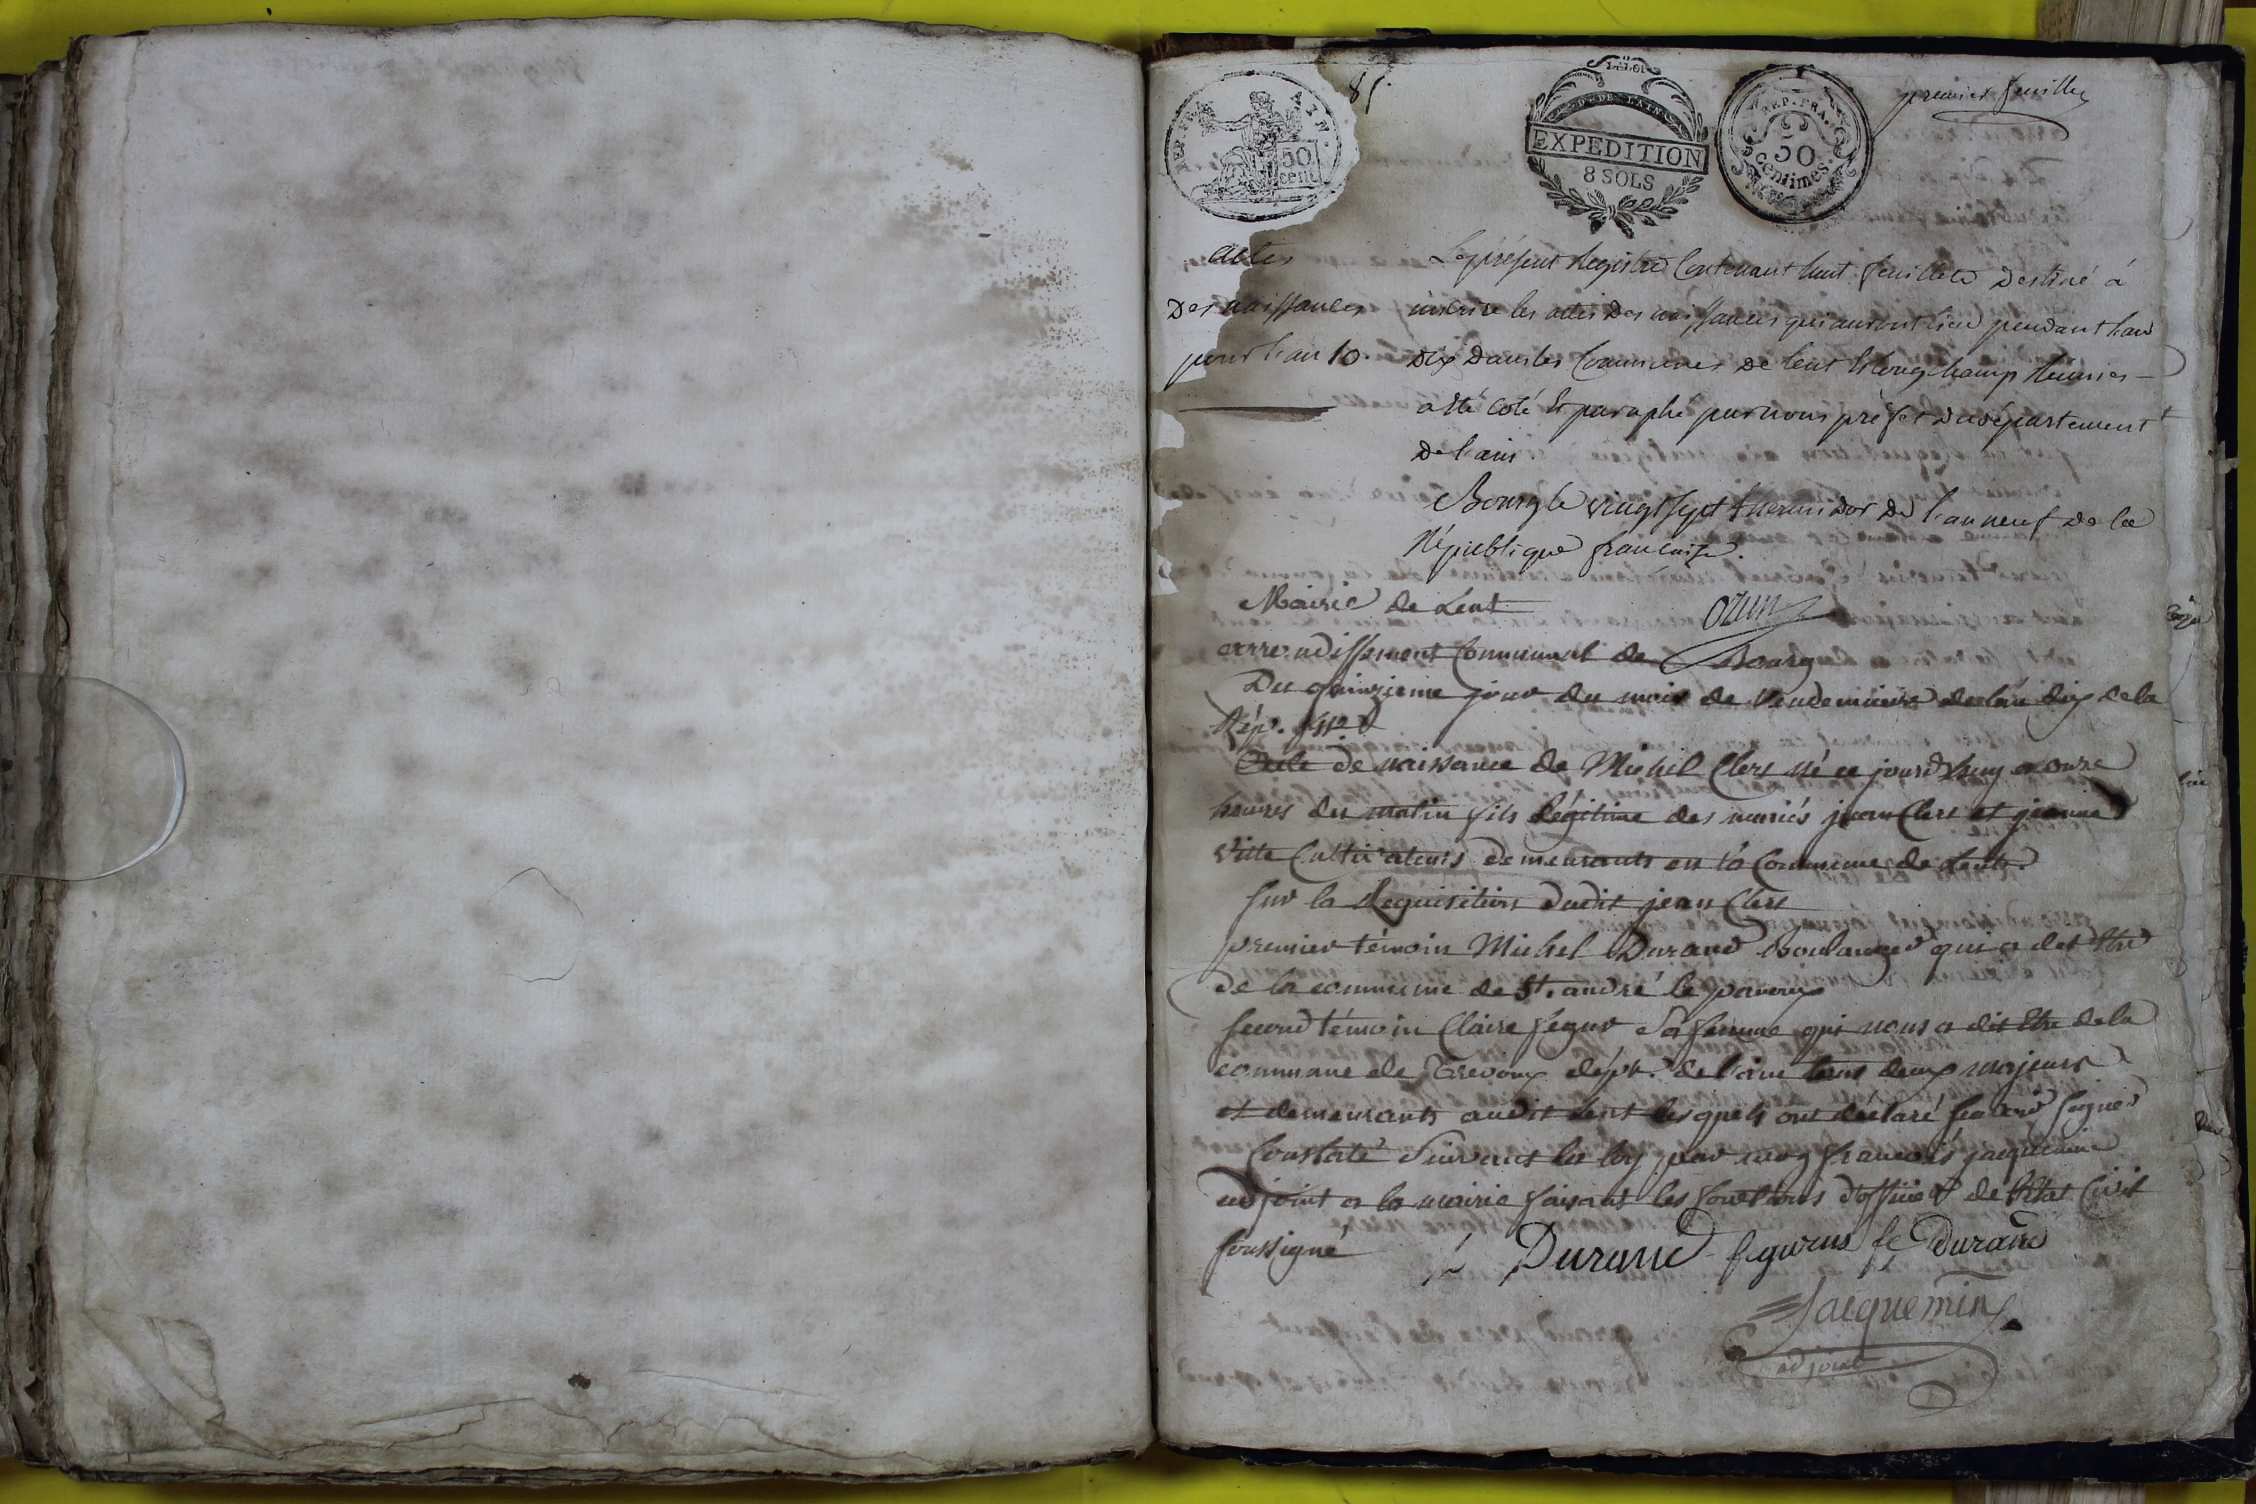 85.
premier feuillet
REP. FRA.
50 cent
LA LOI
DEP. DE L'AIN
EXPEDITION
8 SOLS
REP. FRA.
50
centimes.
actes
Des naissances
pour l'an 10.
Le présent Registre Contenant huit feuillets Destiné á
inscrire les actes Des naissances qui auront lieu pendant l'an
Dix Dans les Communes de lent & longchamp Reunies
a été coté & paraphé par nous préfet du département
De l'ain
Bourg le vingt sept thermidor De l'an neuf de la
République française.
Mairie de Lent
ozun
arrondissement Communal de Bourg
Du quinzieme jour du mois de Vendemiaire de lan dix de la
Rép. fse
Acte de naissance de Michel Clerc né ce jourdhuy a onze
heures du matin fils légitime des mariés jean Clerc et jeanne
Vitte Cultivateurs demeurants en la Commune de Lent
sur la Requisition dudit jean Clerc
premier témoin Michel Durand boulanger qui a dit Etre
de la commune de St. andré le panoux
second témoin Claire segur sa femme qui nous a dit Etre de la
commune de Trevoux dépt. de l'ain tous deux majeurs
et demeurants audit Lent lesquels ont déclaré savoir signer
Constaté Suivant la loy par moy françois jacquemin
adjoint a la mairie faisant les fonctions d'officier de l'Etat Civil
soussigné
Durand segurus fe Durand
Jacquemin
adjoint